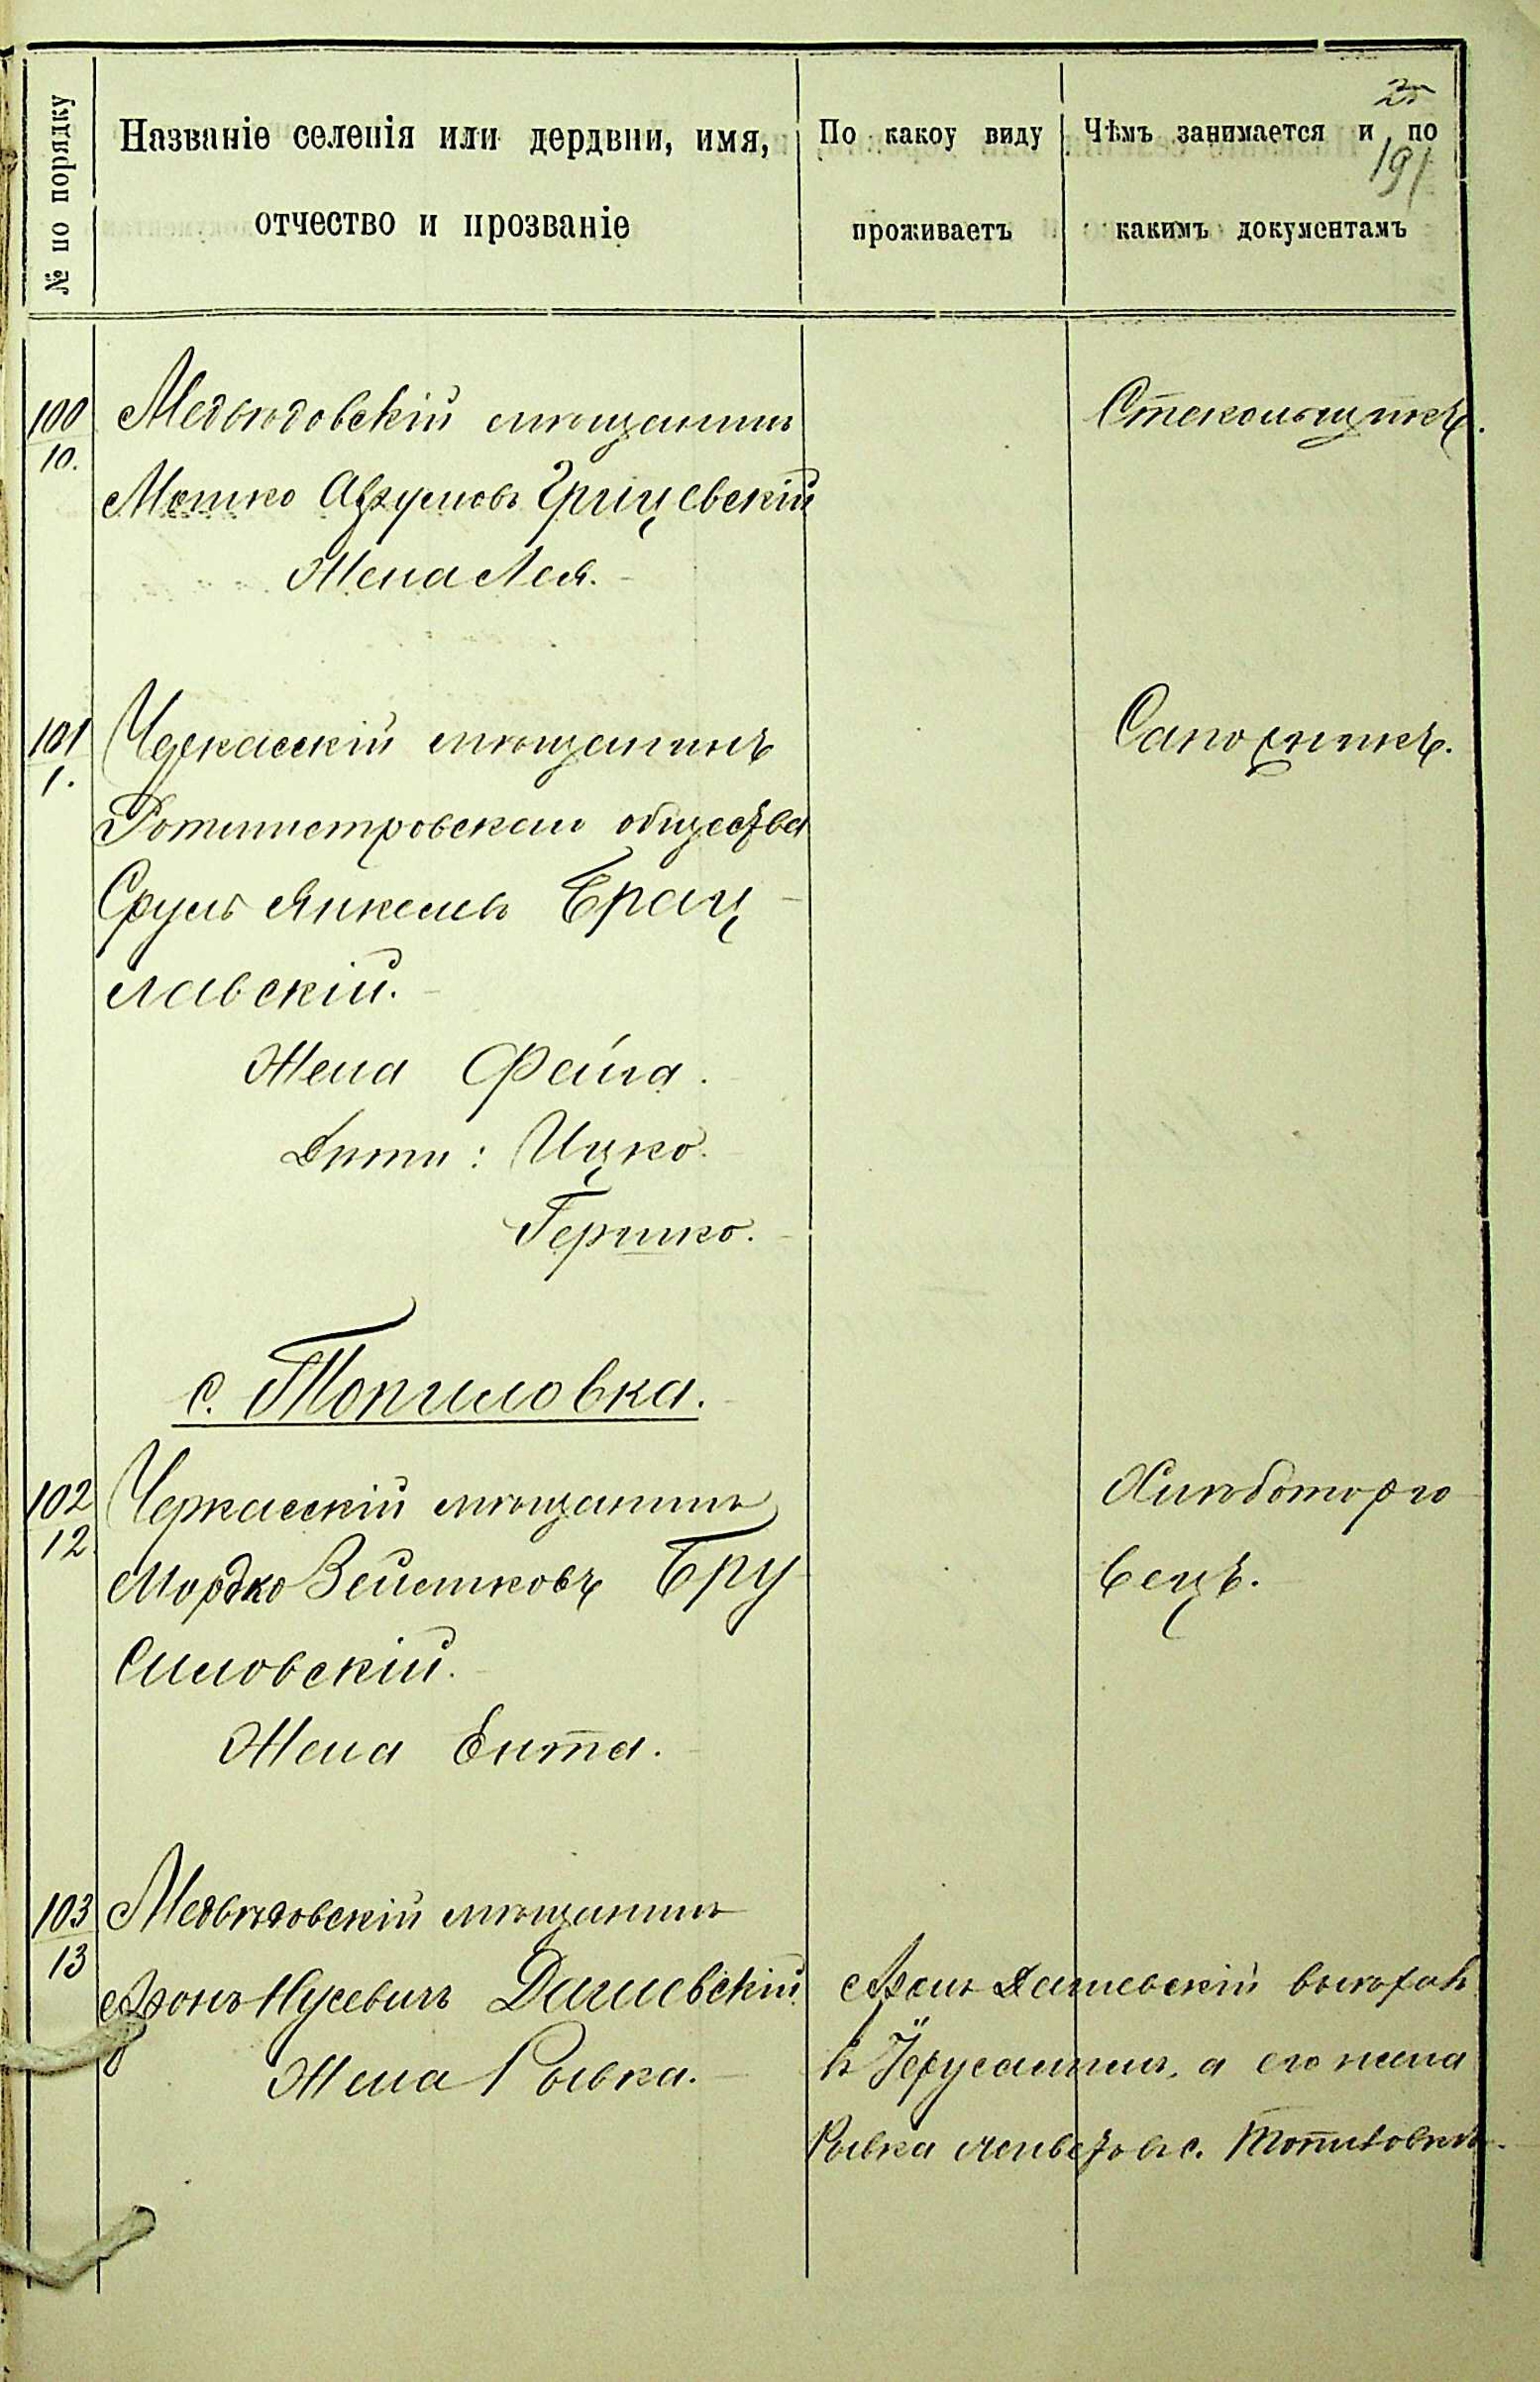 25
191
№ по порядку
Названіе селенія или дердвни, имя,
отчество и прозваніе
По какоу виду
проживаетъ
Чѣмъ занимается и по
какимъ документамъ
100
10.
Медвѣдовскій мѣщанинъ
Мошко Аврумовъ Грищевскій
Жена Лея.
Стекольщикъ.
101
1.
Черкасскій мѣщанинъ
Ротмистровскаго общества
Сруль Янкелевъ Брац-
лавскій.
Жена Фейга.
Дѣти: Ицко.
Гершко.
Сапожникъ.
с. Топиловка.
102
12.
Черкасскій мѣщанинъ
Мордко Бру
силовскій.
Жена Ента.
Хлѣботорго
вецъ.
103
13
Медвѣдовскій мѣщанинъ
Аронъ Нусевичъ Дашевскій
Жена Рывка.
Аронъ Дашевскій выѣхалъ
въ Іерусалимъ, а его жена
Рывка живетъ въ с. Топиловкѣ.